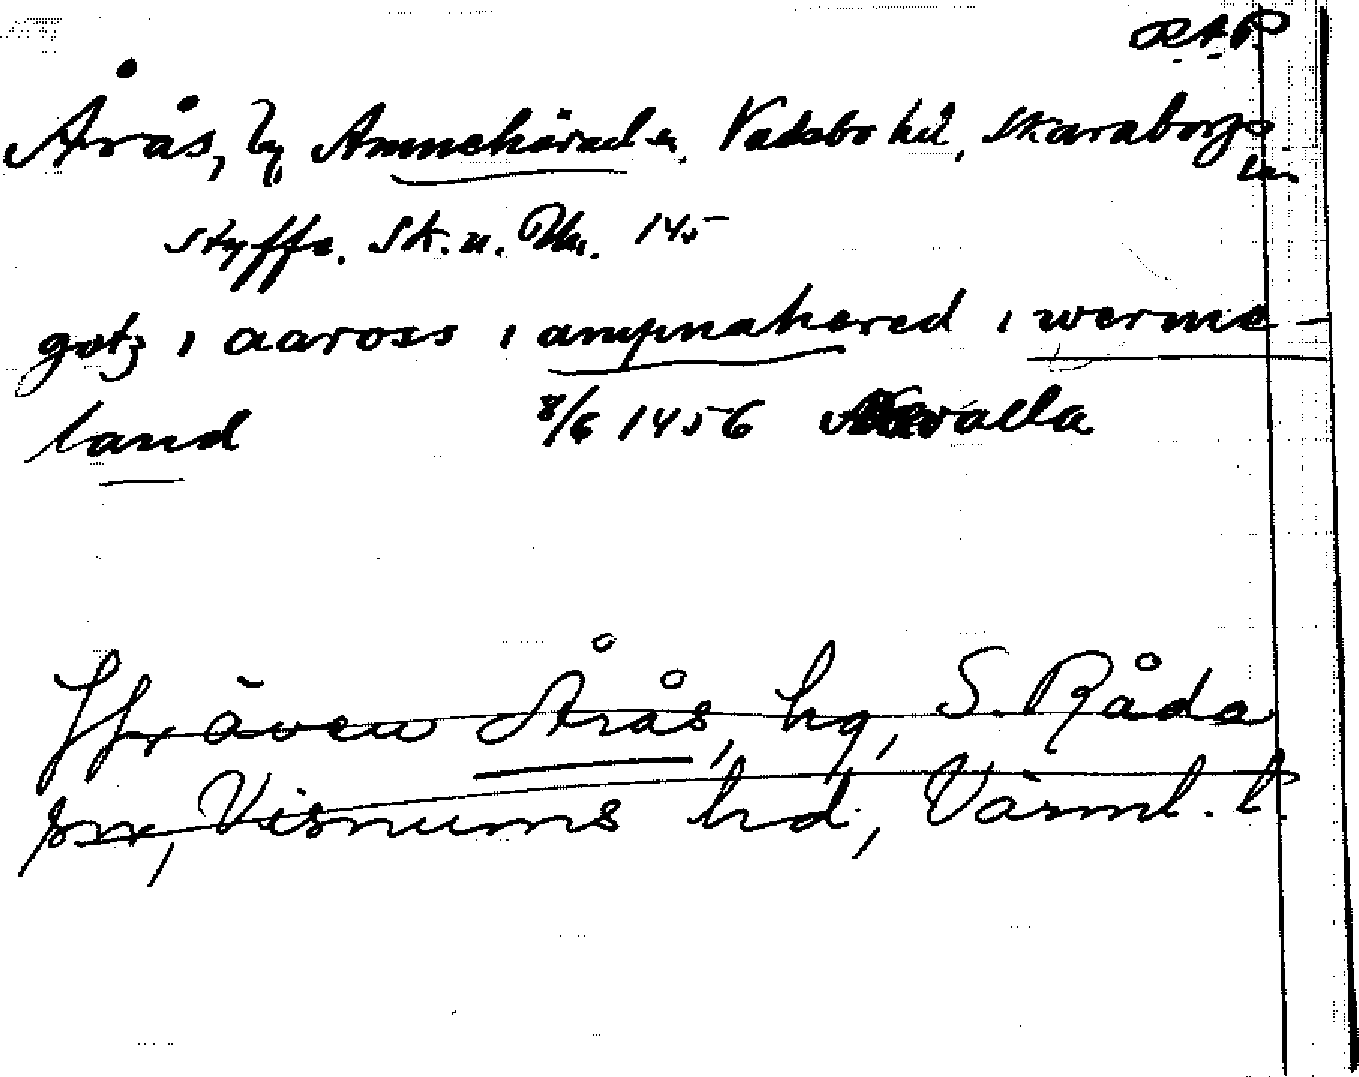 RAP
Årås, by Amnehärad sn. Vadsbo hd, Skaraborgs
län
Styffe. Sk. u. Un. 145
gotz i aaross i ampnahered i werme-
land 8/6 1456 valla
Jfr även Årås, hg, S. Råda
sn, Visnums hd, Värml. l.